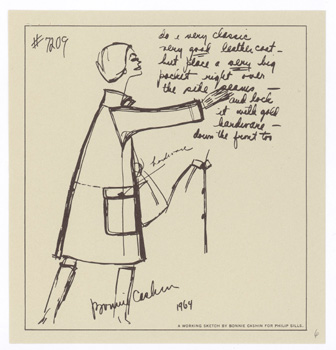 #7209
do a very classic
very good leather coat -
but place a very big
pocket right over
the side seams -
and lock
it with gold
hardware -
down the front too
hardware
Bonnie Cashin
1964
A WORKING SKETCH BY BONNIE CASHIN FOR PHILIP SILLS.